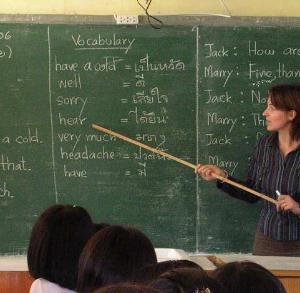 Vocabulary
have a cold = เป็นหวัด
well = ดี
sorry = เสียใจ
hear = ได้ยิน
very much = มาก ๆ
headache = ปวดหัว
have = มี
a cold.
that.
Jack : How are
Marry : Fine, than
Jack : No
Marry : Th
Jack :
Marry
Jack